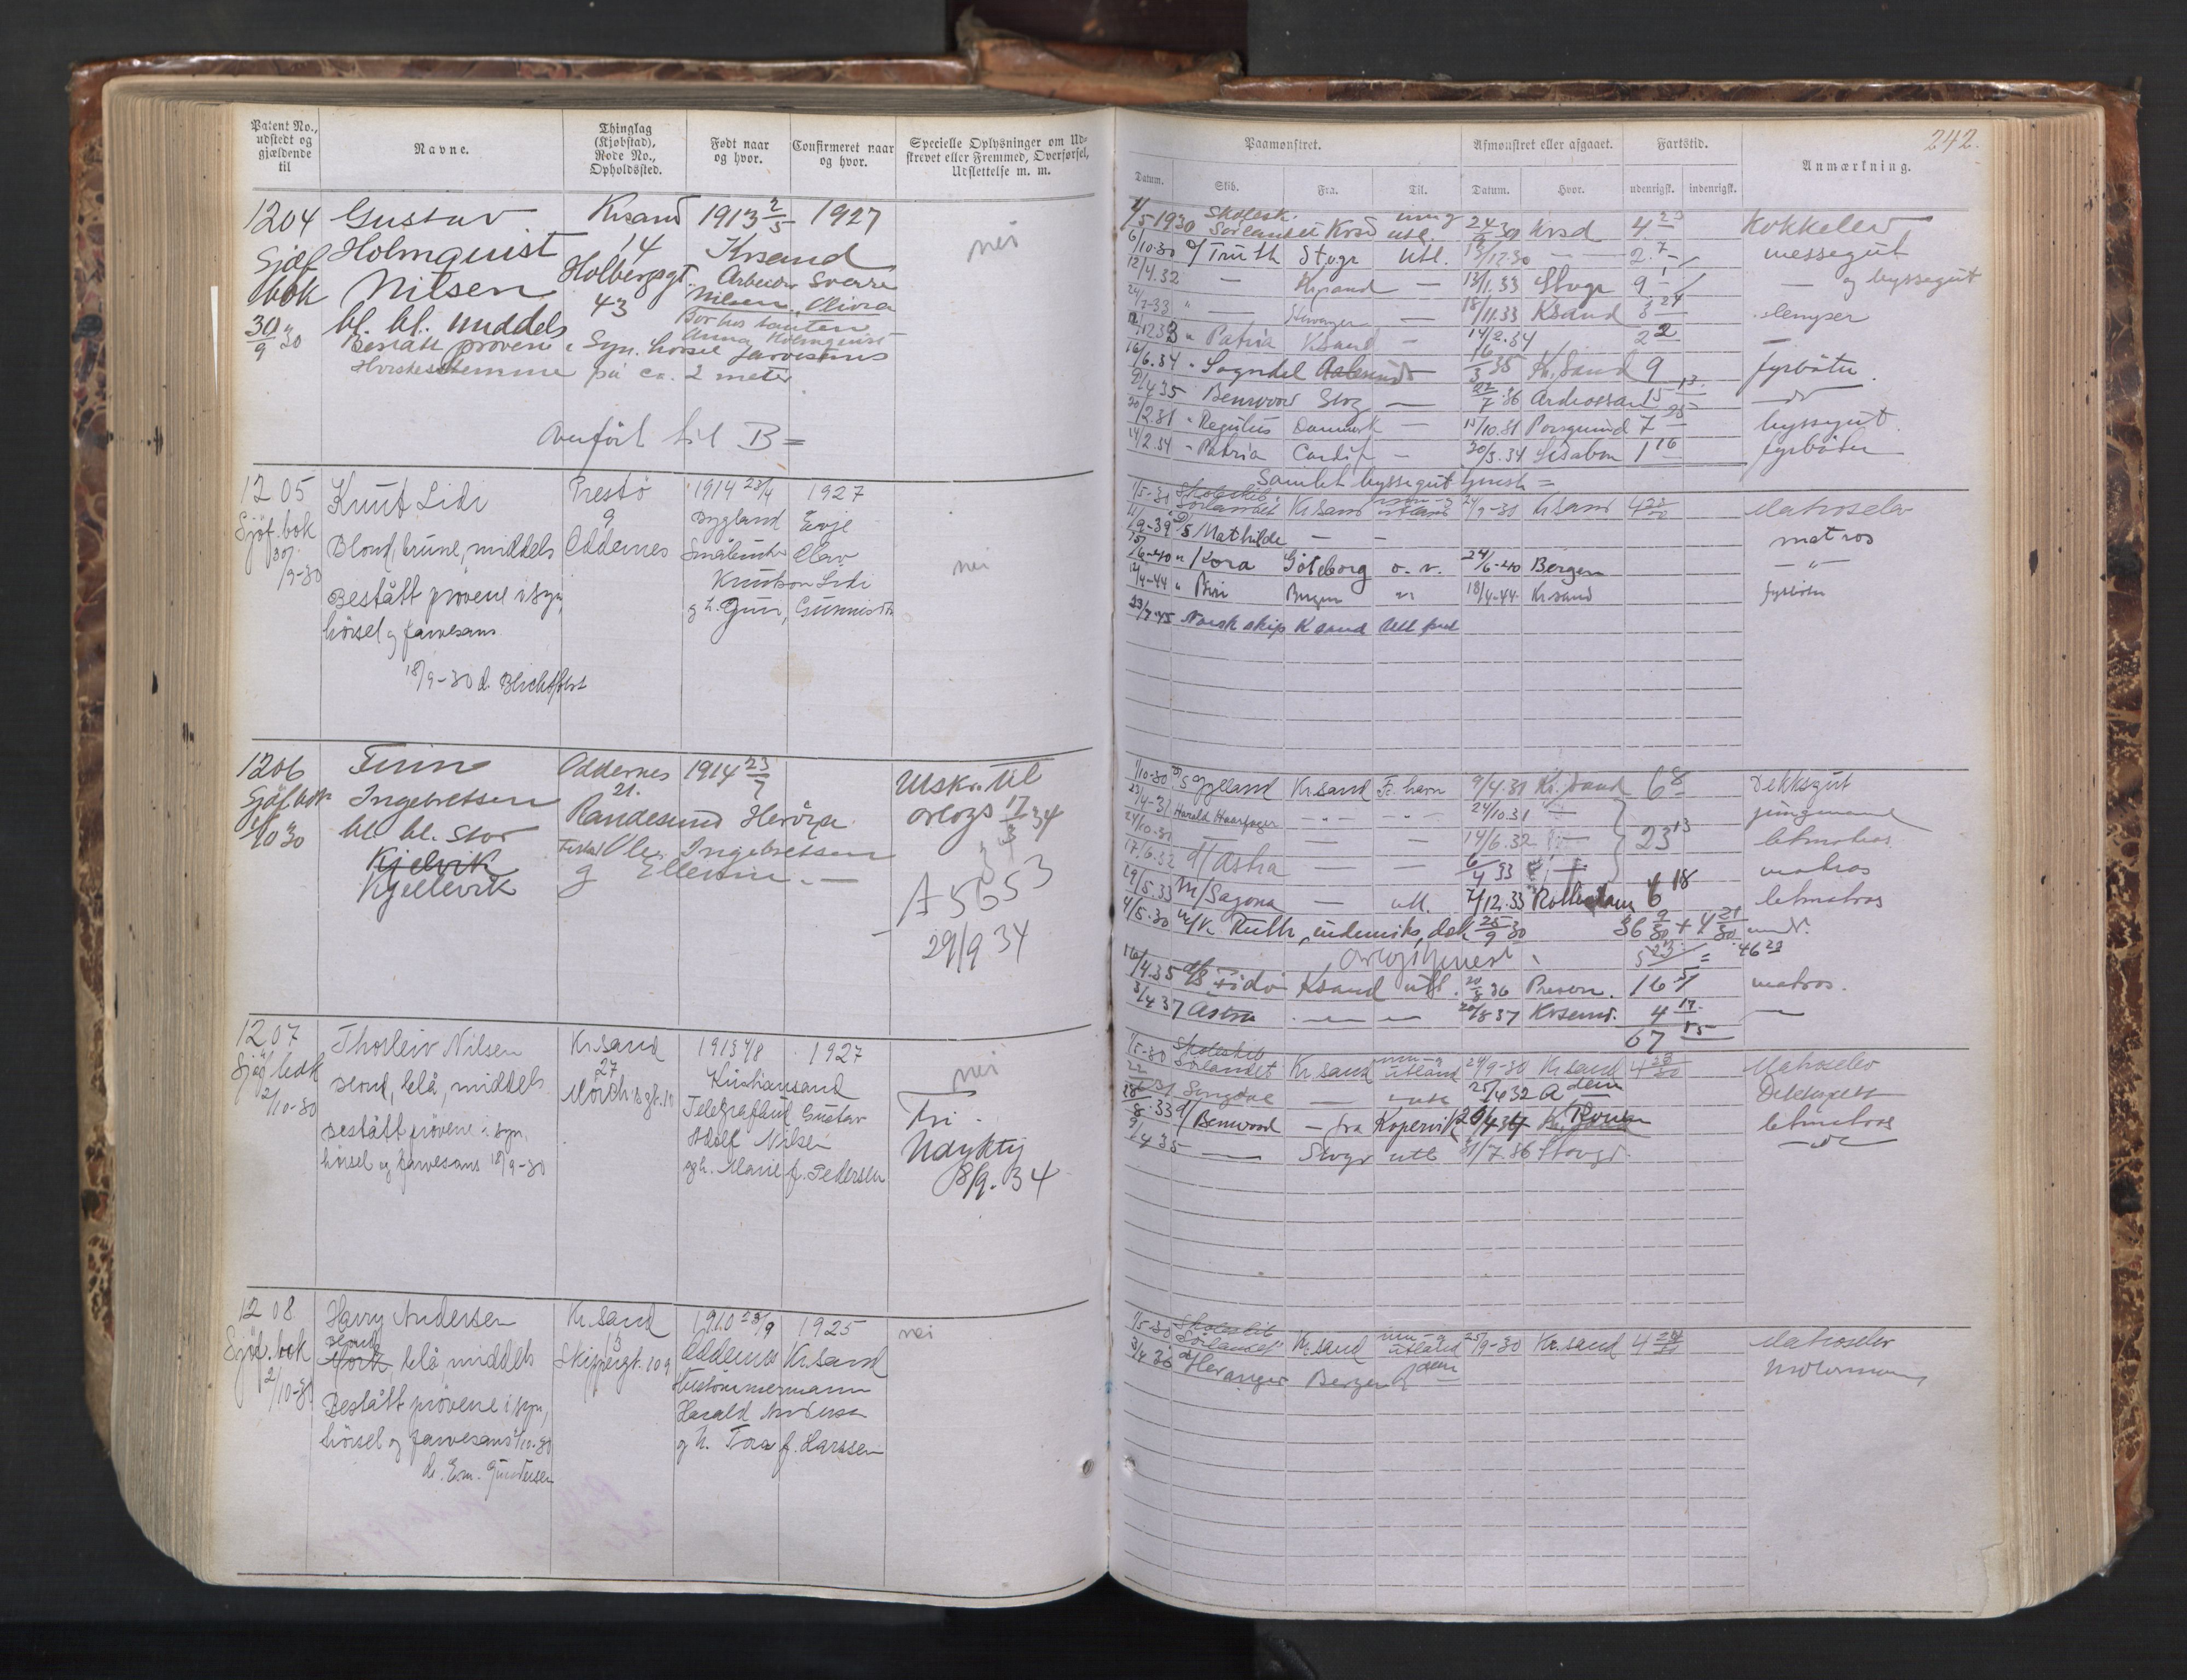 Patent No., udstedt og gjældende til
Navne.
Thinglag (Kjøbstad), Rode No., Opholdssted.
Født naar og hvor.
Confirmeret naar og hvor.
Specielle Oplysninger om Udskrevet eller Fremmed, Overførsel, Udslettelse m. m.
1204 Gustav Krsand 1913 2/5 1927
Sjøf Holmquist 14 Krsand nei
bok Nilsen Holbergsgt. Arbeider Sverre
43 Nilsen, Olivia
30/9 30 bl. bl. middels Bor hos tanten
Bestått prøvene i Syn. hørsel farvesans
Anna Holmquist
Hviskestemme på ca. 2 meter
Overført til B=
1205 Knut Lidi Prestø 1914 23/4 1927
Sjøf.bok 9 Bygland Evje
30/9-30 Blond, brune, middels Oddernes Småbruker Olav
Knutson Lidi nei
Bestått prøvene i syn, g. h. Guri, Gunnists
hørsel og farvesans
18/9-30 d.
1206 Finn Oddernes 1914 23/7 Utskr. til
Sjøf.bok Ingebretsen 21. orlogs 17/3 34
1/10 30 bl. bl. stor Randesund Herøya
Kjelvik Ole Ingebretsen
Kjellevik g Ellevine —
A 5653
29/9 34
1207 Thorleiv Nilsen Kr.sand 1913 4/8 1927
Sjøf.bok 27 Kristiansand nei
2/10-30 blond, blå, middels Mørchsgt. 10 Telegrafbud Gustav Fri.
Bestått prøvene i syn, Adolf Nilsen Udyktig
hørsel og farvesans 18/9-30 g h. Marie f. Pedersen 8/9. 34
1208 Harry Andersen Kr.sand 1910 23/9 1925 nei
Sjøf.bok blond 13 Oddernes Kr.sand
2/10-30 Mørk blå, middels Skippergt. 109
Hustømmermann
Bestått prøvene i syn, Harald Andersen
hørsel og farvesans 1/10-30 g h. Tora f. Larssen
d. Em. Gundersen
242.
Paamønstret.
Afmønstret eller afgaaet.
Fartstid.
Anmærkning.
Datum. Skib. Fra. Til. Datum. Hvor. udenrigsk. indenrigsk.
1/5-1930 Skolesk. Sørlandet Krsd inn og utl. 24/9 30 Krsd 4 23 Kokkelev
6/10.30 d/ Truth Stvgr utl. 2.7 messegut
12/4.32 — — 13/1.33 Stvgr 9 1 — og byssegut
— Stavanger — 18/11.33 Ksand 3 24 slemper
" Patria Ksand — 14/2.34 2 2
16/6.34 - Sogndal Aalesund — 16/3 35 Kr.sand 9 fyrbøter.
9/4.35 Benwood Stvg — 7.36 15 13 — do
20/2.31 - Regulus Danmark — 15/10.31 Porsgrund 7 25 byssegut.
14/2.34 - Patria Cardif - 30/3.34 Lisabon 1 16 fyrbøter
Samlet byssegut tjeneste =
1/5-30 Skoleskib. Sørlandet Kr.sand inn og utland 24/9-30 Kr.sand 4 23/30 Matroselev
11/9-39 d/s Mathilde — — matros
15/6-40 " Kora Göteborg o. v. 24/6-40 Bergen — " —
12/4-44 " Biri Bergen " 18/4-44 Kr.sand fyrbøter
23/7-45 Norsk skip Ksand Utl fart
1/10-30 d/s Jylland Kr.sand Fr. havn 9/4.31 Kr.sand 6 8 Dekksgut
23/4-31 Harald Haarfager — — 24/10.31 — jungmand
24/10.31 — — 14/6.32 — 23 13 letmatros
17/6.32 d/ Astra — — 6/4 33 matros
29/5.33 M/ Sagona — utl. 7/12.33 Rotterdam 6 18 letmatros
1/5.30 m/k Ruth, indenriks, dek 25/9 30 36 9/30 + 4 21/30
Orlogstjenest 5 23 = 46 23
16/4.35 d/s Fido Ksand utl. 20/8 36 16 5 matros.
3/4 37 Astra — — 20/8 37 Krsand. 4 17 —
67 15
1/5-30 Skoleskib Sørlandet Kr.sand inn og utland 24/9-30 Kr.sand 4 23/30 Matroselev
Songdal — utl 25/4 32 Adem Dekksgutt
8.33 d/ Benwood — fra Kopervik Rouen letmatros
9/4 35 — Stvgr utl 31/7.36 Stvgr. — do
1/5-30 Skoleskib Sørlandet Kr.sand inn og utland 25/9-30 Kr.sand 4 24/30 Matroselev
3/4 36 d/ Heranger Bergen motormann